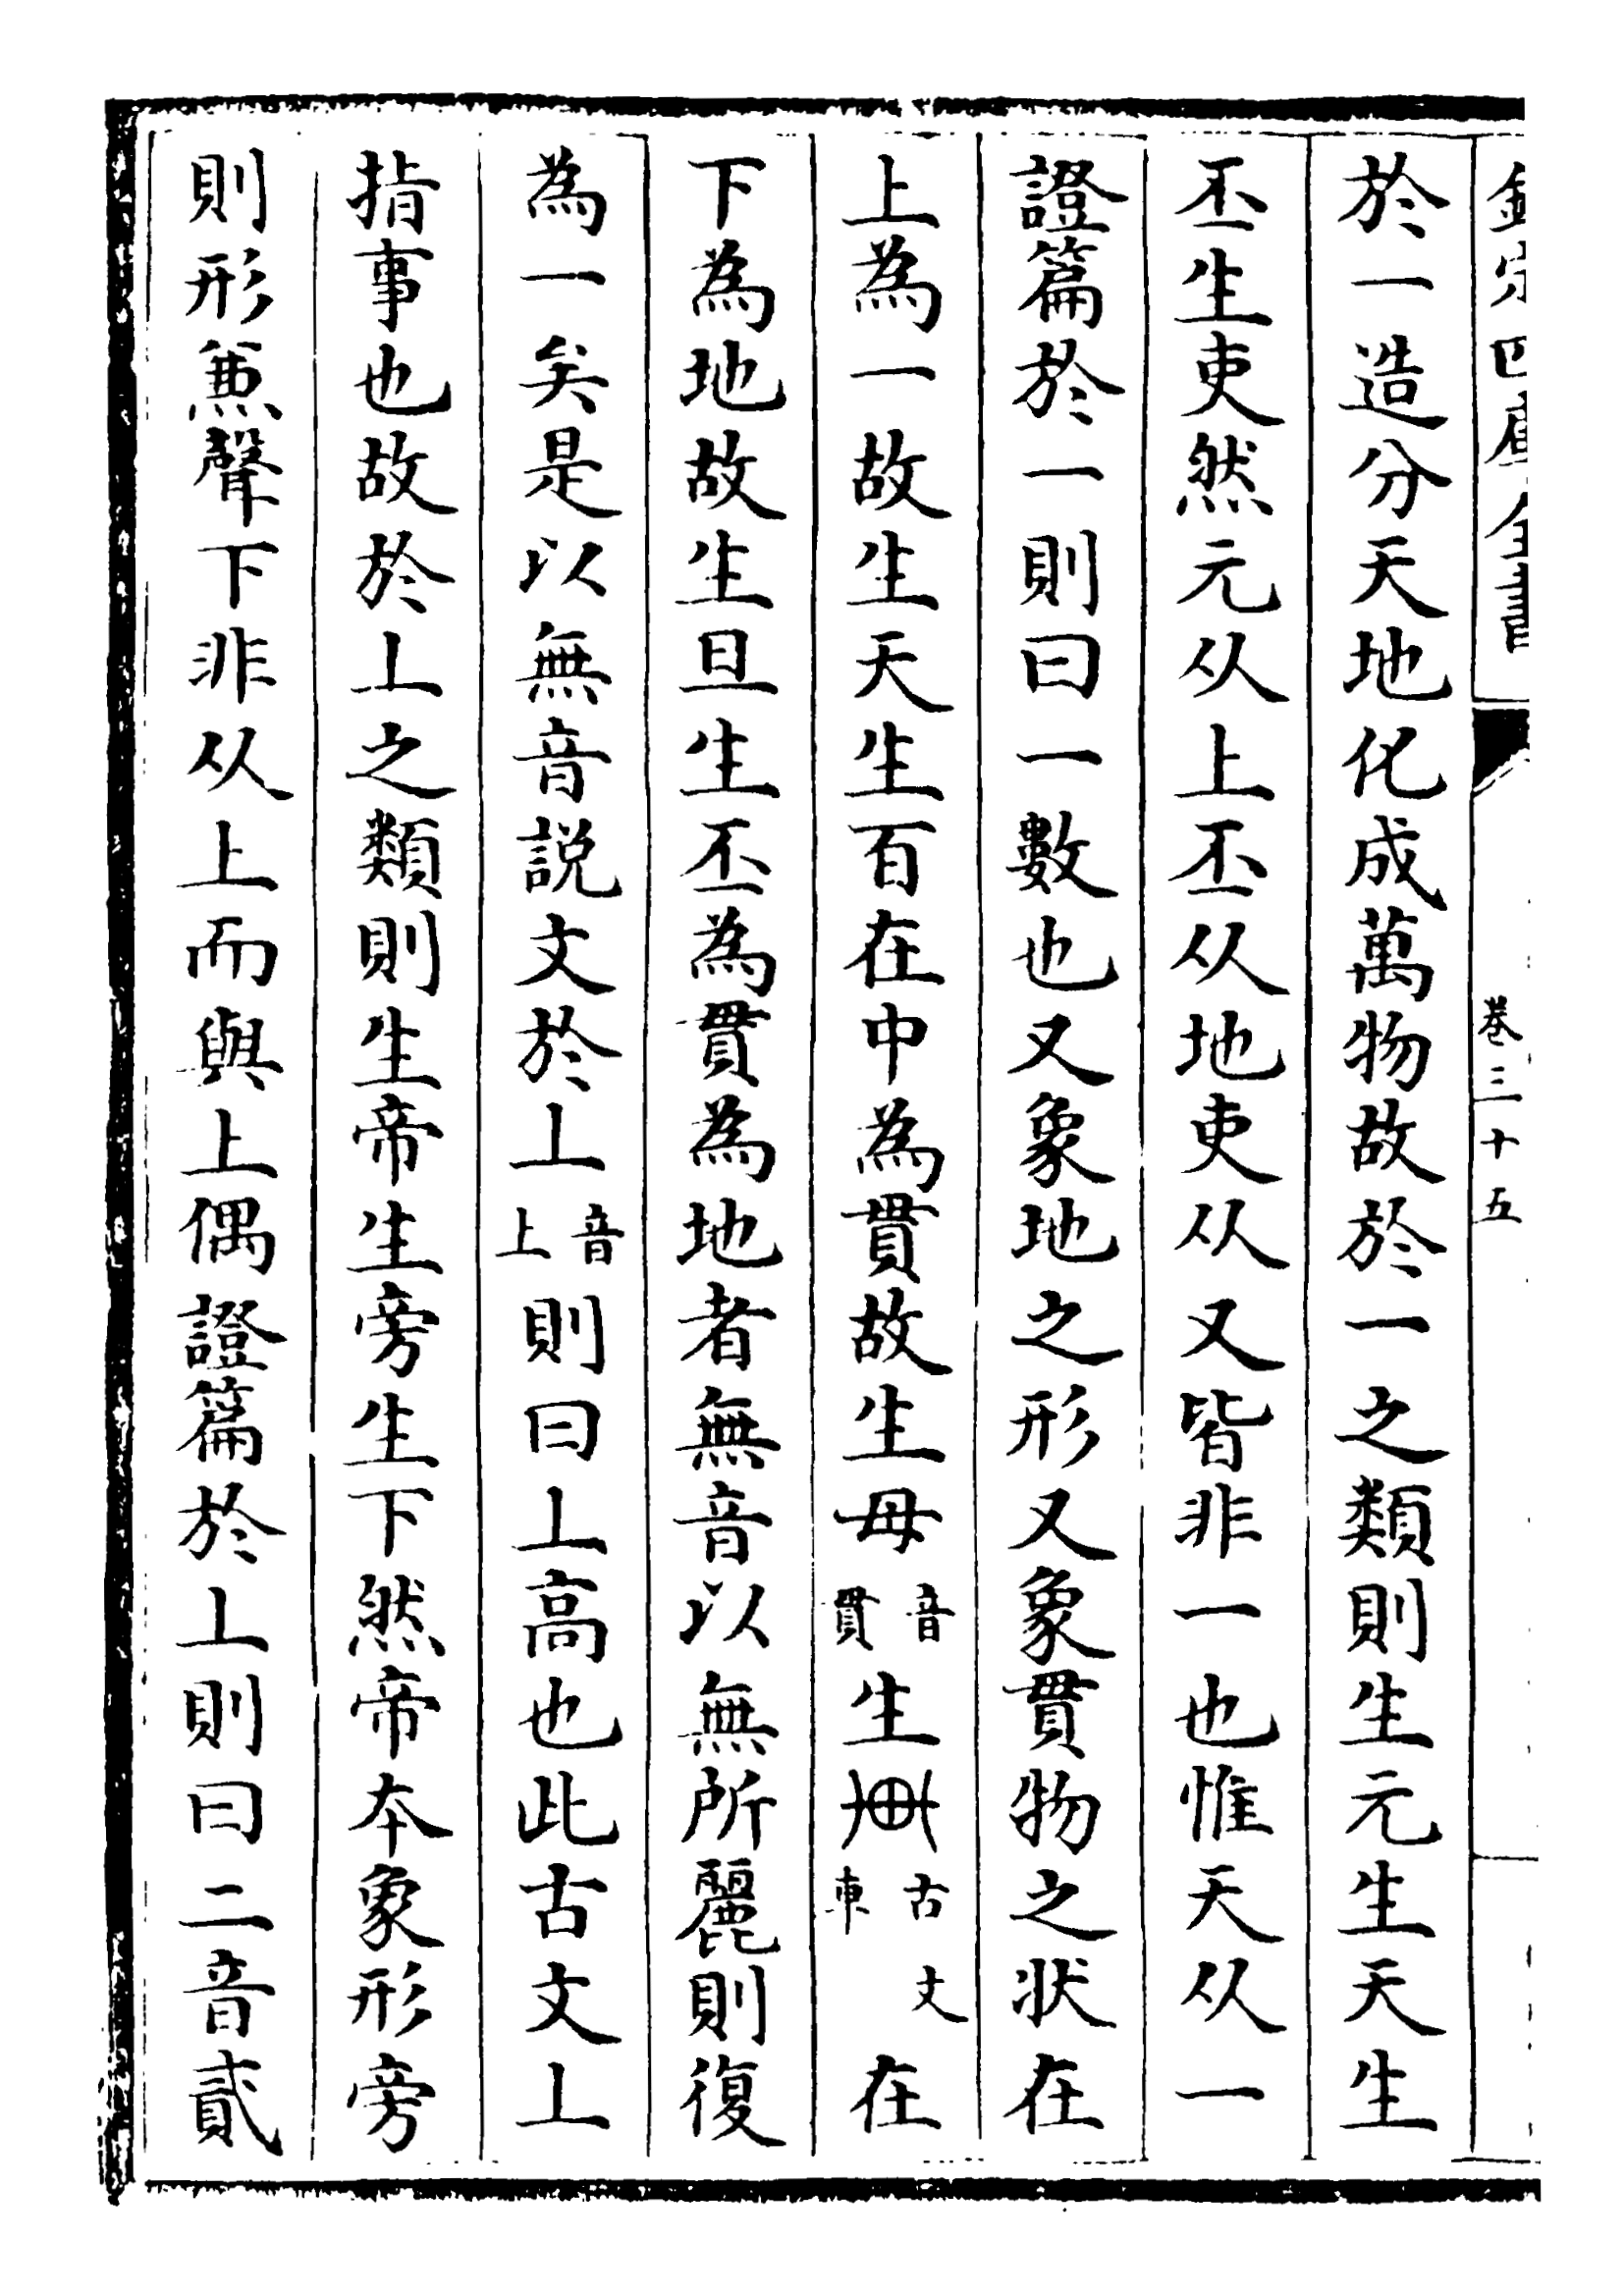 欽定四庫全書
卷三十五
於一造分天地化成萬物故於一之類則生元生天生
丕生吏然元从上丕从地吏从又皆非一也惟天从一
證篇於一則曰一數也又象地之形又象貫物之状在
上為一故生天生百在中為貫故生毌音貫生𠦪古文東在
下為地故生旦生丕為貫為地者無音以無所麗則復
為一矣是以無音説文於丄音上則曰丄高也此古文丄
指事也故於丄之類則生帝生旁生下然帝本象形旁
則形兼聲下非从上而與上偶證篇於丄則曰二音貳